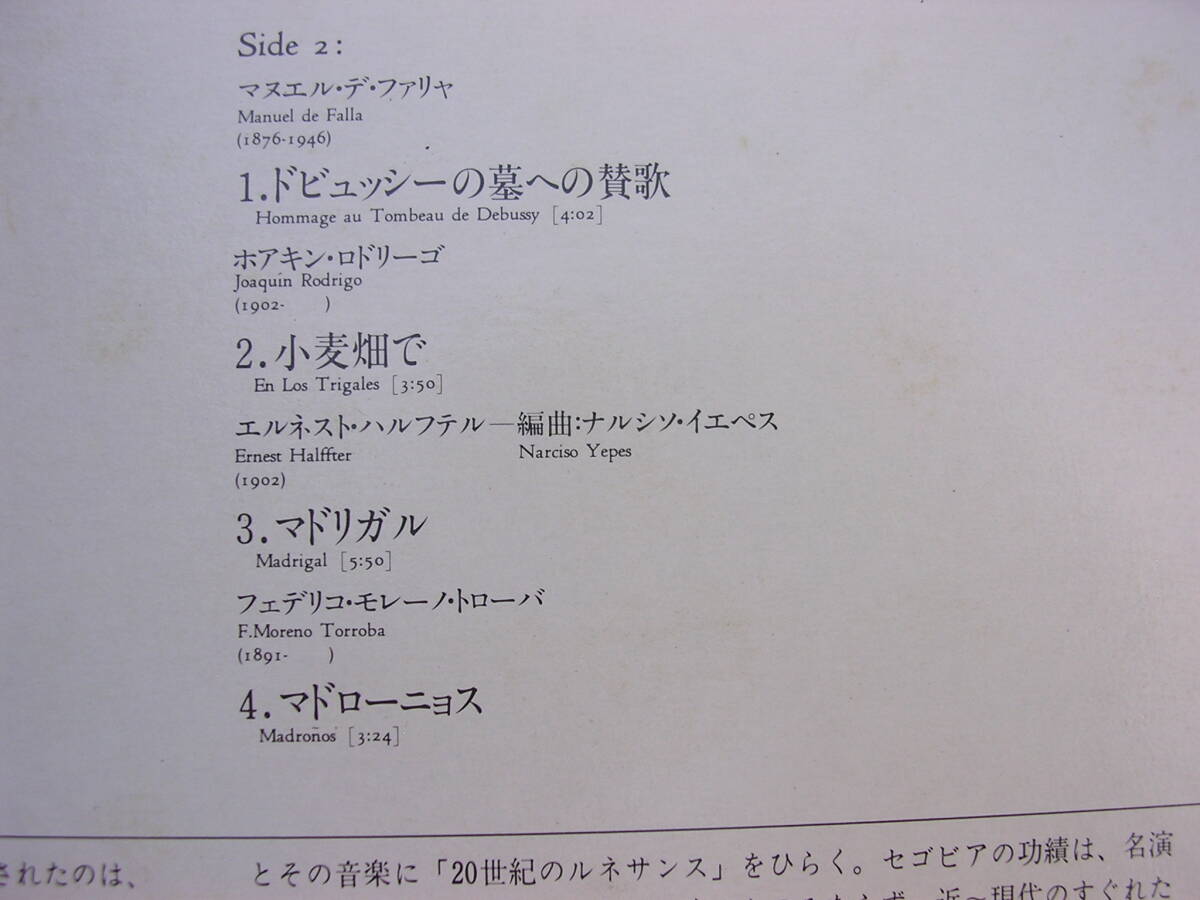 Side 2:
マヌエル・デ・ファリャ
Manuel de Falla
(1876-1946)
1.ドビュッシーの墓への賛歌
Hommage au Tombeau de Debussy [4:02]
ホアキン・ロドリーゴ
Joaquín Rodrigo
(1902- )
2.小麦畑で
En Los Trigales [3:50]
エルネスト・ハルフテル―編曲:ナルシソ・イエペス
Ernest Halffter Narciso Yepes
(1902)
3.マドリガル
Madrigal [5:50]
フェデリコ・モレーノ・トローバ
F.Moreno Torroba
(1891- )
4.マドローニョス
Madroños [3:24]
されたのは、
とその音楽に「20世紀のルネサンス」をひらく。セゴビアの功績は、名演
近〜現代のすぐれた